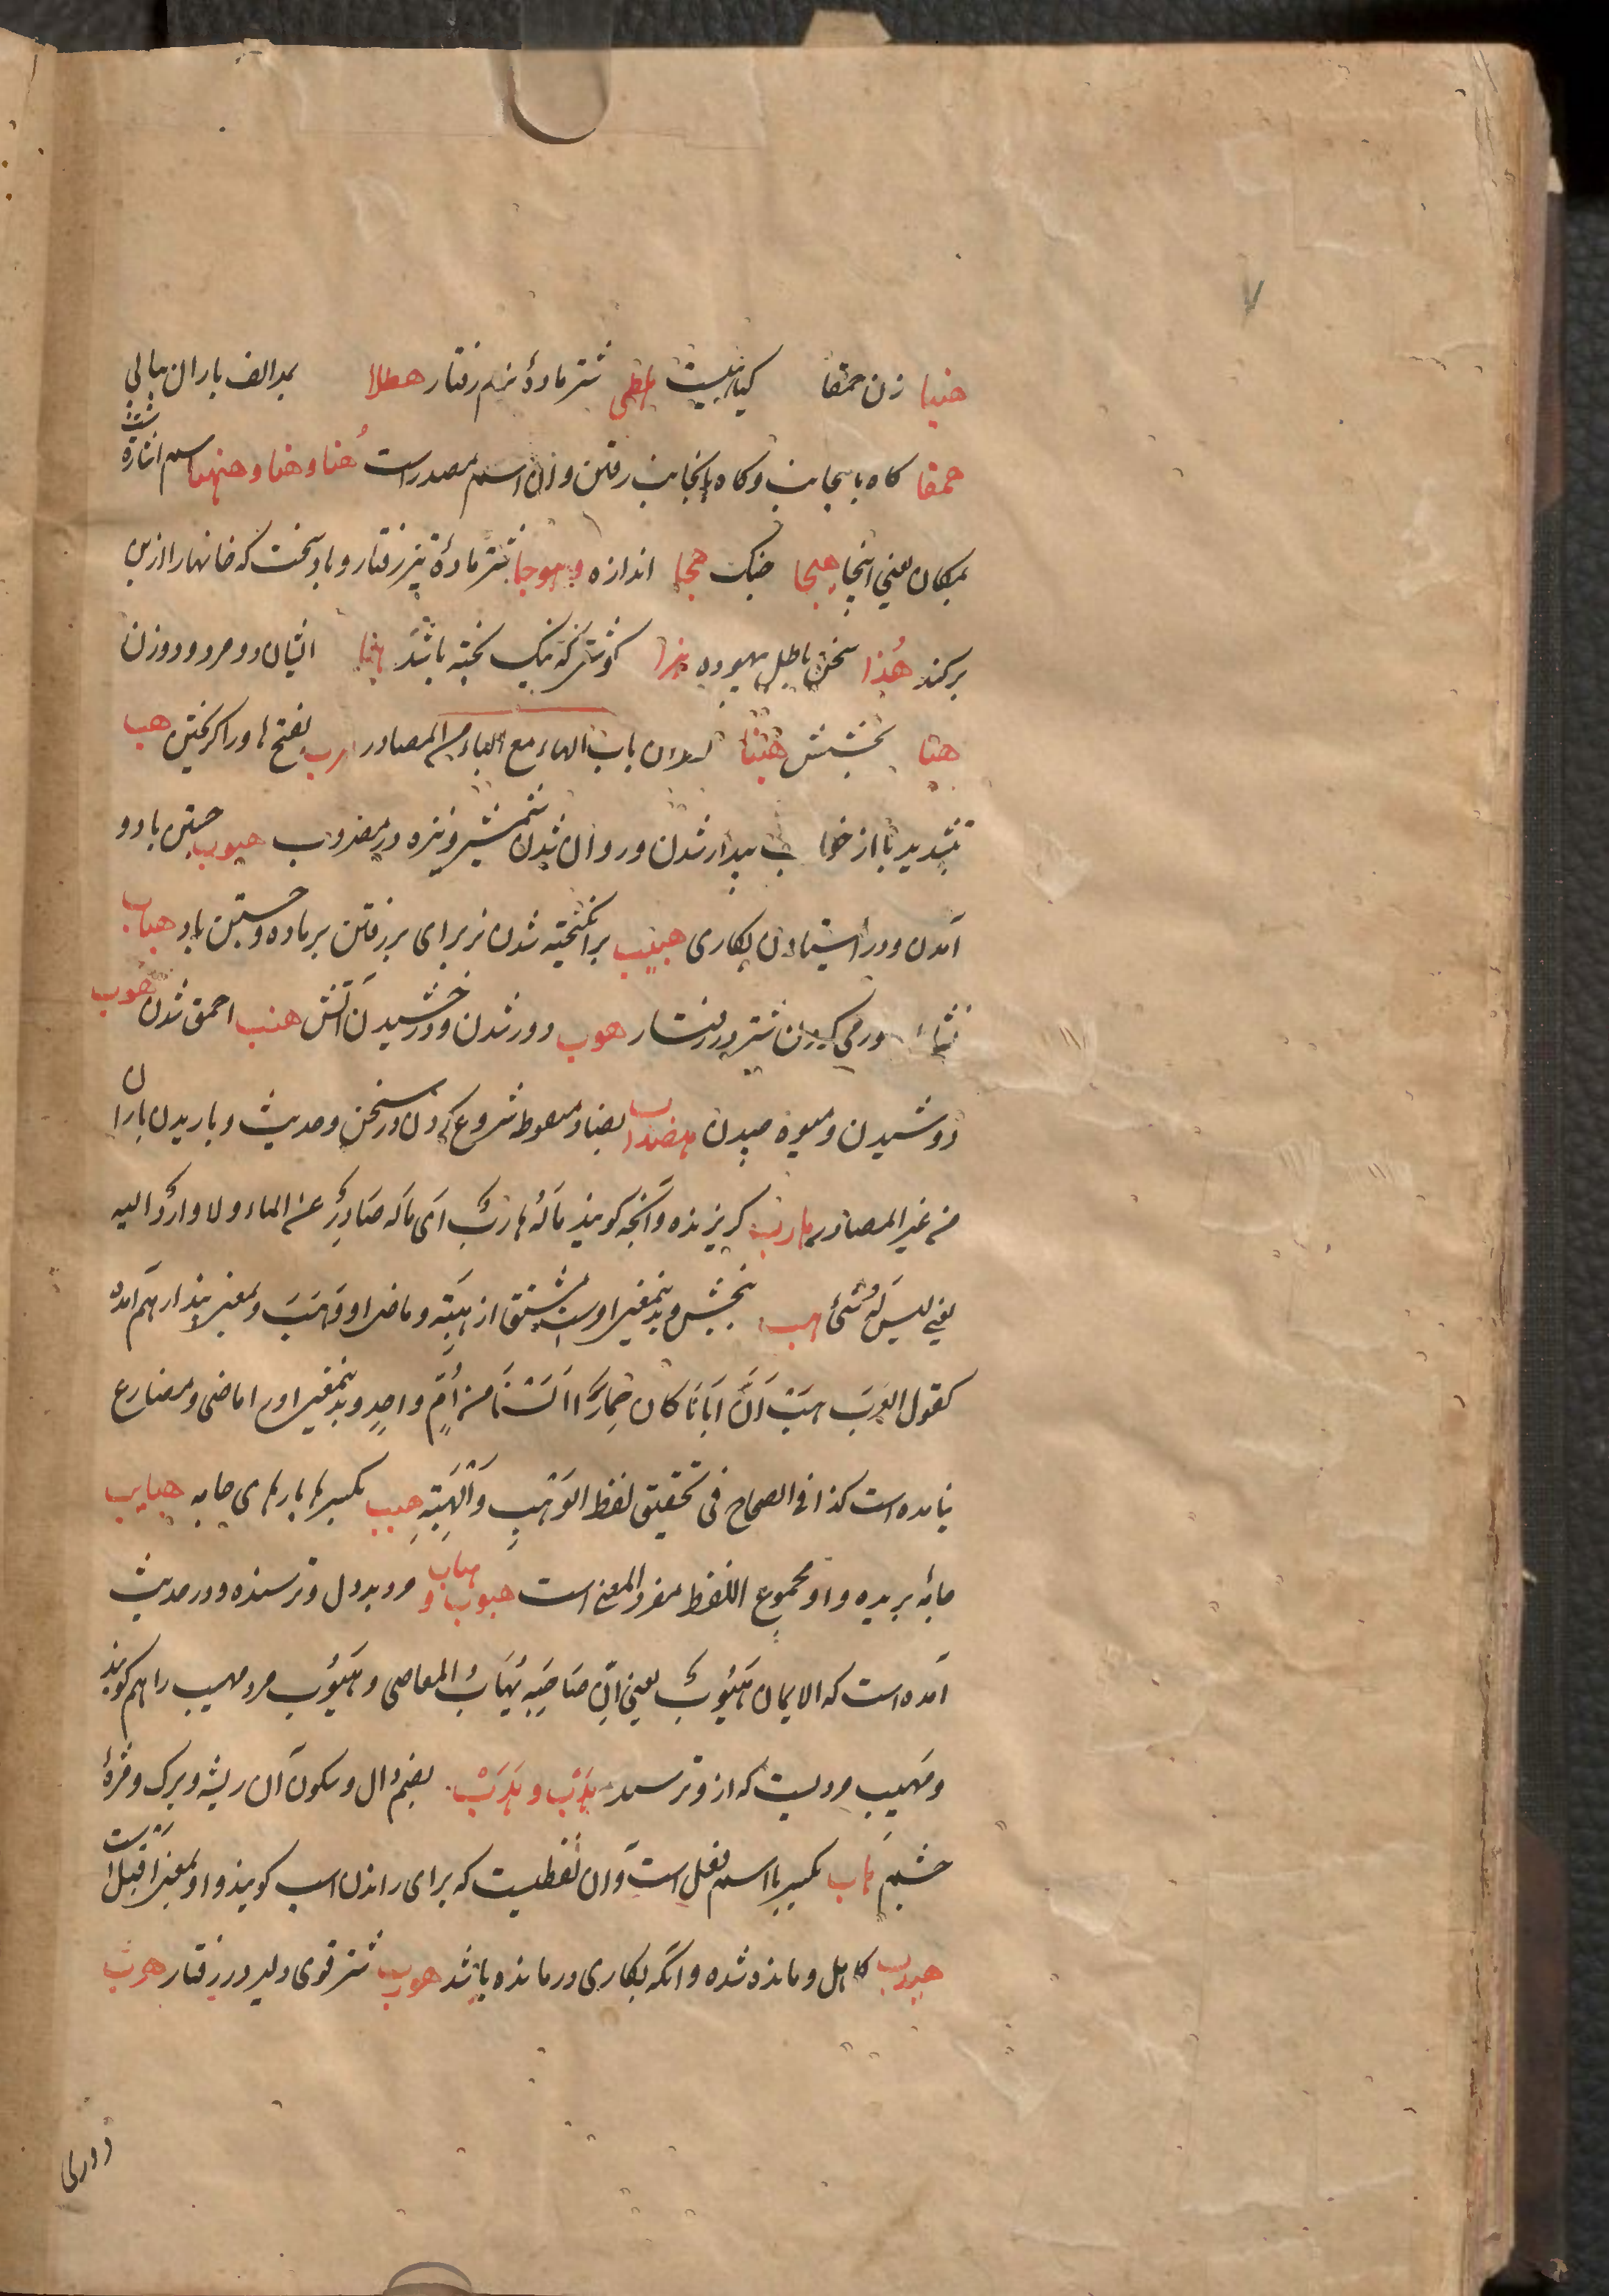 هنبا زن حمقا کیاهیست هطی شتر مادهٔ نرم رفتار هطلا بمد الف باران بیاپی
همقا کاه باینجانب و کاه بانجانب رفتن و این اسم مصدر است هُنا و هنا و هنهنا اسم اشارة است
بمکان یعنی اینجا هیجا جنک هجا اندازه و هوجا شتر مادهٔ تیز رفتار و باد سخت که خانها را از بن
برکند هُذا سخن باطل بیهوده هرا کوشتی که نیک پخته باشد هما ایشان دو مرد و دو زن
هنا بخشش هنا باب الهاء مع الباء من المصادر هرب بفتح ها و را کریختن هب
بتشدید با از خواب بیدار شدن و روان شدن شمشیر و نیزه در مضروب هبوب جستن باد و
آمدن و در ایستادن بکاری هبیب برانکیخته شدن نر برای بر رفتن بر ماده و جستن باد هباب
نشاط ورمی کردن شتر در رفتار هوب دور شدن و درخشیدن آتش هنب احمق شدن هوب
دوشیدن و میوه چیدن هضب بضاد منقوطه شروع کردن در سخن و حدیث و باریدن باران
من غیر المصادر هارب کریزنده و آنچه کویند مَالَهُ هَارِبٌ اَی مَالَه صَادِرٌ عن الماء ولا واردٌ الیه
یعنی لیسَ لَهُ شئ هب ببخش و بدینمعنی او است مشتق از هِبَتِه و ماضی او وَهَبَ و بمعنی پندار هم آمده
کقول العرب هَبْ اَنَّ اَبَانَا کان حِمَارًا اَلَسْنَا من اُمٍّ واحدٍ و بدینمعنی او را ماضی و مضارع
نیامده است کذا فی الصحاح فی تحقیق لفظ الوَهْبِ وَالْهِبَتِه هبب بکسر ها پارهای جامه هبایب
جامهٔ بریده و او مجموع اللفظ مفرد المعنی است هیوب و هیاب مرد بددل و ترسنده و در حدیث
آمده است که الایمان هَیُوبٌ یعنی اِنَّ صَاحِبَهُ یَهَابُ المعاصی و هَیُوب مرد مهیب را هم کویند
و مَهیب مردیست که ازو ترسند هُدْب و هُدُبْ بضم دال و سکون آن ریشه و برک و مژهٔ
چشم هاب بکسر با اسم فعل است و آن لفظیست که برای راندن اسب کویند و او بمعنی اقبل است
هیدب کاهل و مانده شده و آنکه بکاری درمانده باشد هوب شتر قوی دلیر در رفتار هرب